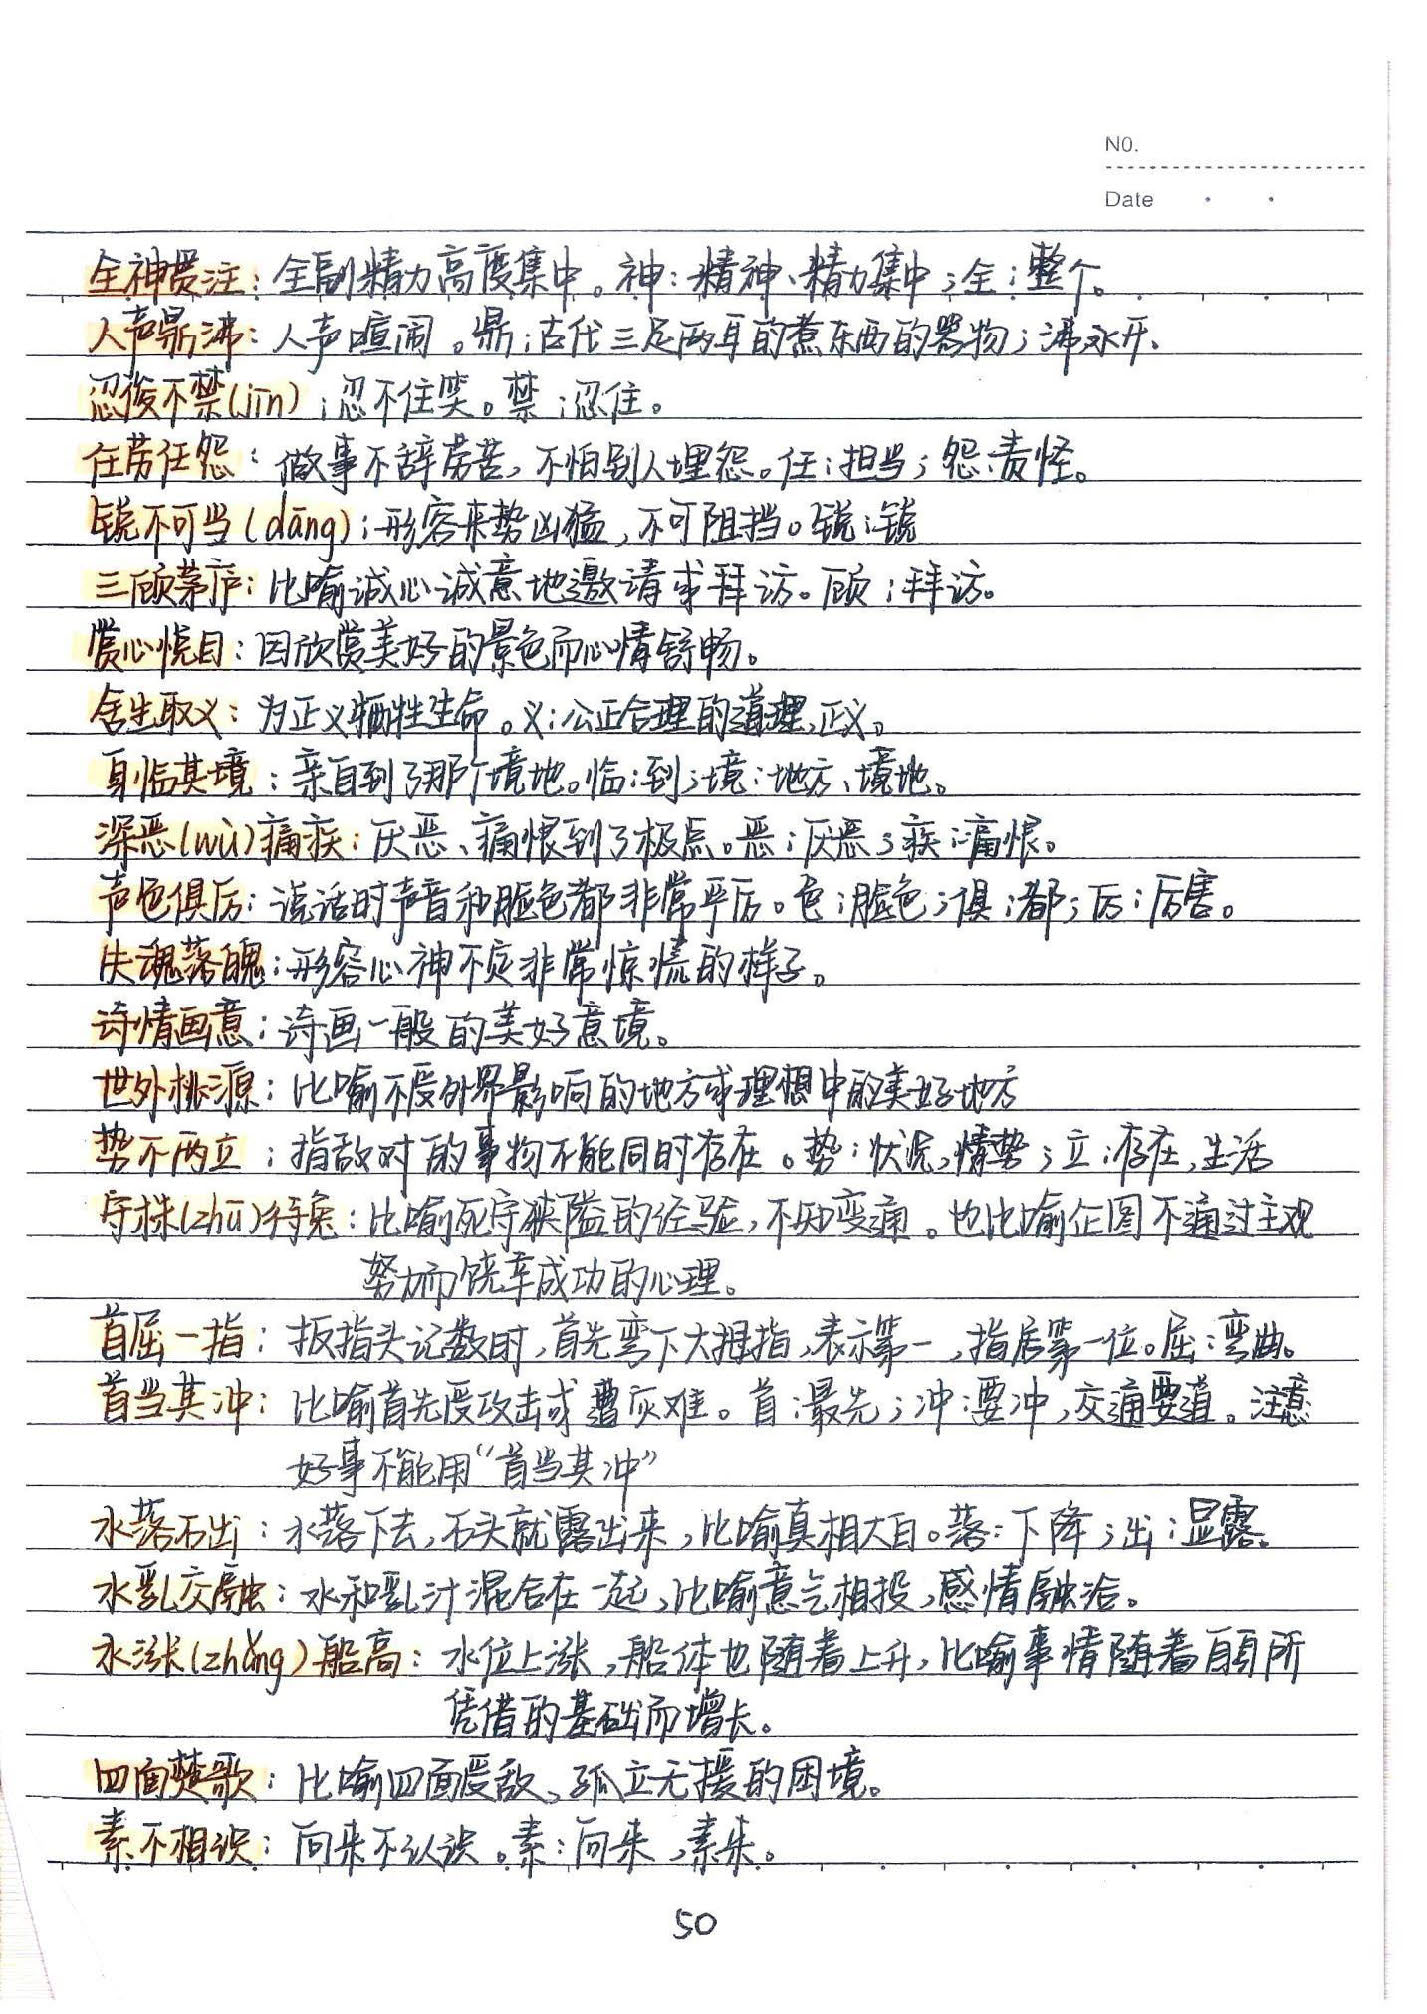 N0.
Date
全神贯注：全副精力高度集中。神：精神、精力集中；全：整个。
人声鼎沸：人声喧闹。鼎：古代三足两耳的煮东西的器物；沸水开、
忍俊不禁(jīn)：忍不住笑。禁：忍住。
任劳任怨：做事不辞劳苦，不怕别人埋怨。任：担当；怨：责怪。
锐不可当(dāng)：形容来势凶猛，不可阻挡。锐：锐
三顾茅庐：比喻诚心诚意地邀请或拜访。顾：拜访。
赏心悦目：因欣赏美好的景色而心情舒畅。
舍生取义：为正义牺牲生命。义：公正合理的道理、正义。
身临其境：亲自到了那个境地。临：到；境：地方、境地。
深恶(wù)痛疾：厌恶、痛恨到了极点。恶：厌恶；疾：痛恨。
声色俱厉：说话时声音和脸色都非常严厉。色：脸色；俱：都；厉：厉害。
失魂落魄：形容心神不定非常惊慌的样子。
诗情画意：诗画一般的美好意境。
世外桃源：比喻不受外界影响的地方或理想中的美好地方
势不两立：指敌对的事物不能同时存在。势：状况，情势；立：存在，生活
守株(zhū)待兔：比喻死守狭隘的经验，不知变通。也比喻企图不通过主观
努力而饶幸成功的心理。
首屈一指：扳指头记数时，首先弯下大拇指，表示第一，指居第一位。屈：弯曲。
首当其冲：比喻首先受攻击或遭灾难。首：最先；冲：要冲，交通要道。注意
好事不能用“首当其冲”
水落石出：水落下去，石头就露出来，比喻真相大白。落：下降；出：显露。
水乳交融：水和乳汁混合在一起，比喻意气相投，感情融洽。
水涨(zhǎng)船高：水位上涨，船体也随着上升，比喻事情随着自身所
凭借的基础而增长。
四面楚歌：比喻四面受敌、孤立无援的困境。
素不相识：向来不认识。素：向来，素来。
50